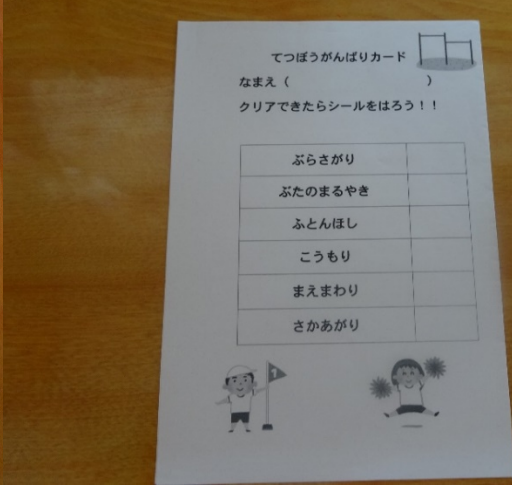 てつぼうがんばりカード
なまえ（　　　　　　　　　　）
クリアできたらシールをはろう！！
ぶらさがり
ぶたのまるやき
ふとんほし
こうもり
まえまわり
さかあがり
1